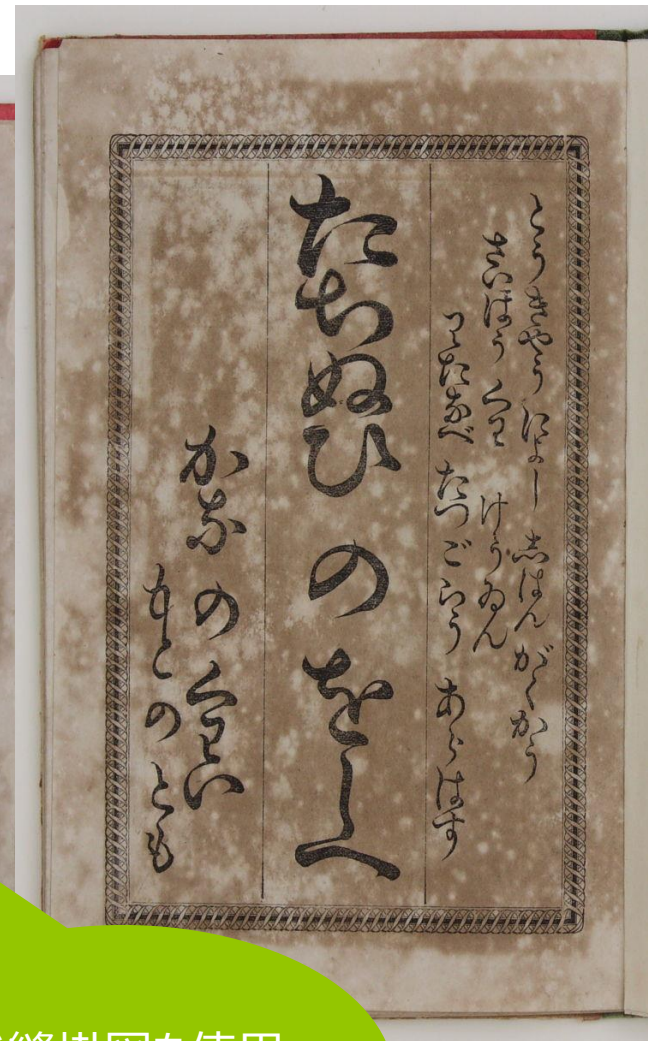 とうきやう によし 志はん がくかう
さいほう くわ けうゐん
わたなべ たつごらう あらはす
たちぬひ の をしへ
かな の くわい
もとのとも
縫掛図も使用